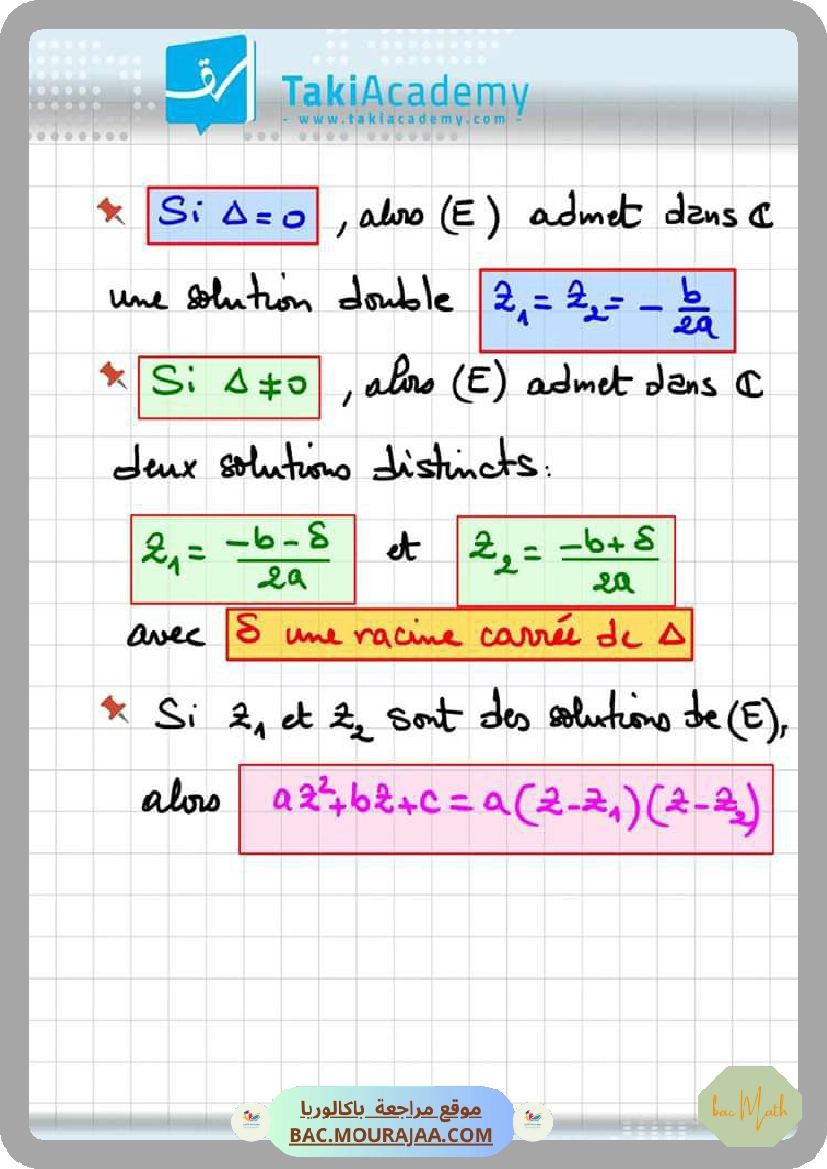 TakiAcademy
- www.takiacademy.com -
Si Δ = 0 , alors (E) admet dans ℂ
une solution double z₁ = z₂ = - b/2a
Si Δ ≠ 0 , alors (E) admet dans ℂ
deux solutions distincts:
z₁ = (-b - δ)/2a et z₂ = (-b + δ)/2a
avec δ une racine carrée de Δ
Si z₁ et z₂ sont des solutions de (E),
alors az² + bz + c = a(z - z₁)(z - z₂)
موقع مراجعة باكالوريا
BAC.MOURAJAA.COM
bac Math